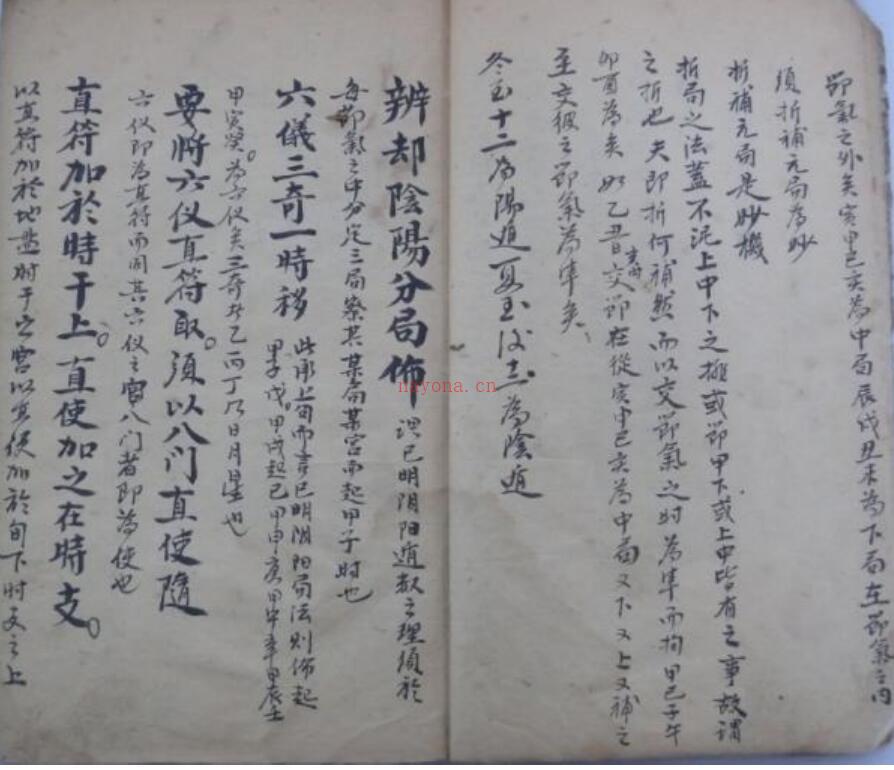 節氣之外矣寅申巳亥為中局辰戌丑未為下局在節氣之內
須折補元局為妙
折補元局是妙機
折局之法蓋不泥上中下之擬或節甲下或上中皆有之事故謂
之折也夫即折何補然而以交節氣之时為準而拘甲己子午
卯酉為矣如乙丑日交節在從寅申巳亥為中局又下又上又補之
至交彼之節氣為準矣
冬至十二為陽遁夏至後十二為陰遁
辨却陰陽分局佈 謂已明阴阳遁数之理須於
每節氣之中分定三局察其某局某宮而起甲子时也
六儀三奇一時移 此承上句而言已明阴阳局法则佈起
甲子戊。甲戌起己甲申庚甲午辛甲辰壬
甲寅癸。為六仪矣三奇於乙丙丁乃日月星也
要將六仪直符取。須以八门直使隨
六仪即為直符而同其六仪之宮八门者即為使也
直符加於時干上。直使加之在時支。
以直符加於地盤时干之宮以直使加於旬下时支之上
nayona.cn